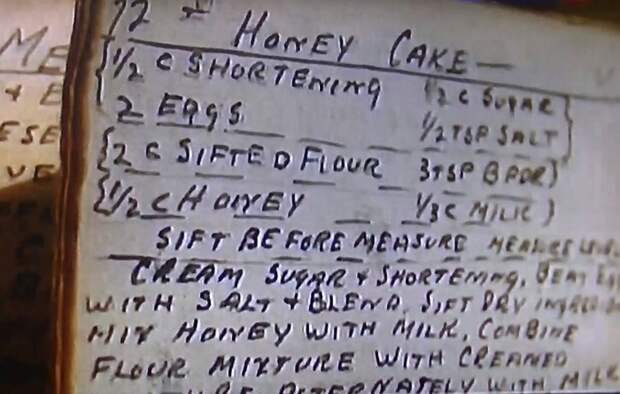 ME
& E
ESE
VE
72 - HONEY CAKE —
{ 1/2 C SHORTENING 1/2 C SUGAR }
2 EGGS 1/2 TSP SALT }
{ 2 C SIFTED FLOUR 3 TSP B PDR }
{ 1/2 C HONEY 1/3 C MILK }
SIFT BEFORE MEASURE MEASURE
CREAM SUGAR & SHORTENING, BEAT
WITH SALT & BLEND. SIFT DRY
MIX HONEY WITH MILK, COMBINE
FLOUR MIXTURE WITH CREAMED
ALTERNATELY WITH MILK